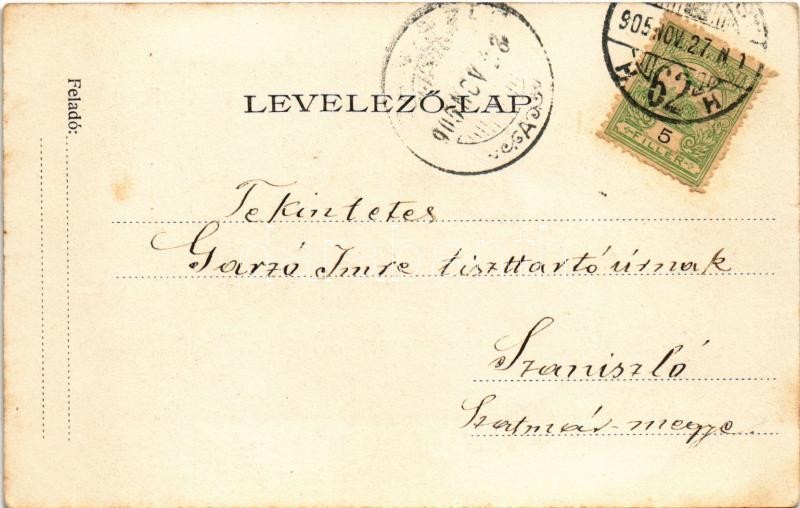 Feladó:
LEVELEZŐ-LAP
905 NOV. 27. N 1
62
H
H
5
FILLÉR
Tekintetes
Garzó Imre tiszttartó úrnak
Szaniszló
Szatmár-megye.